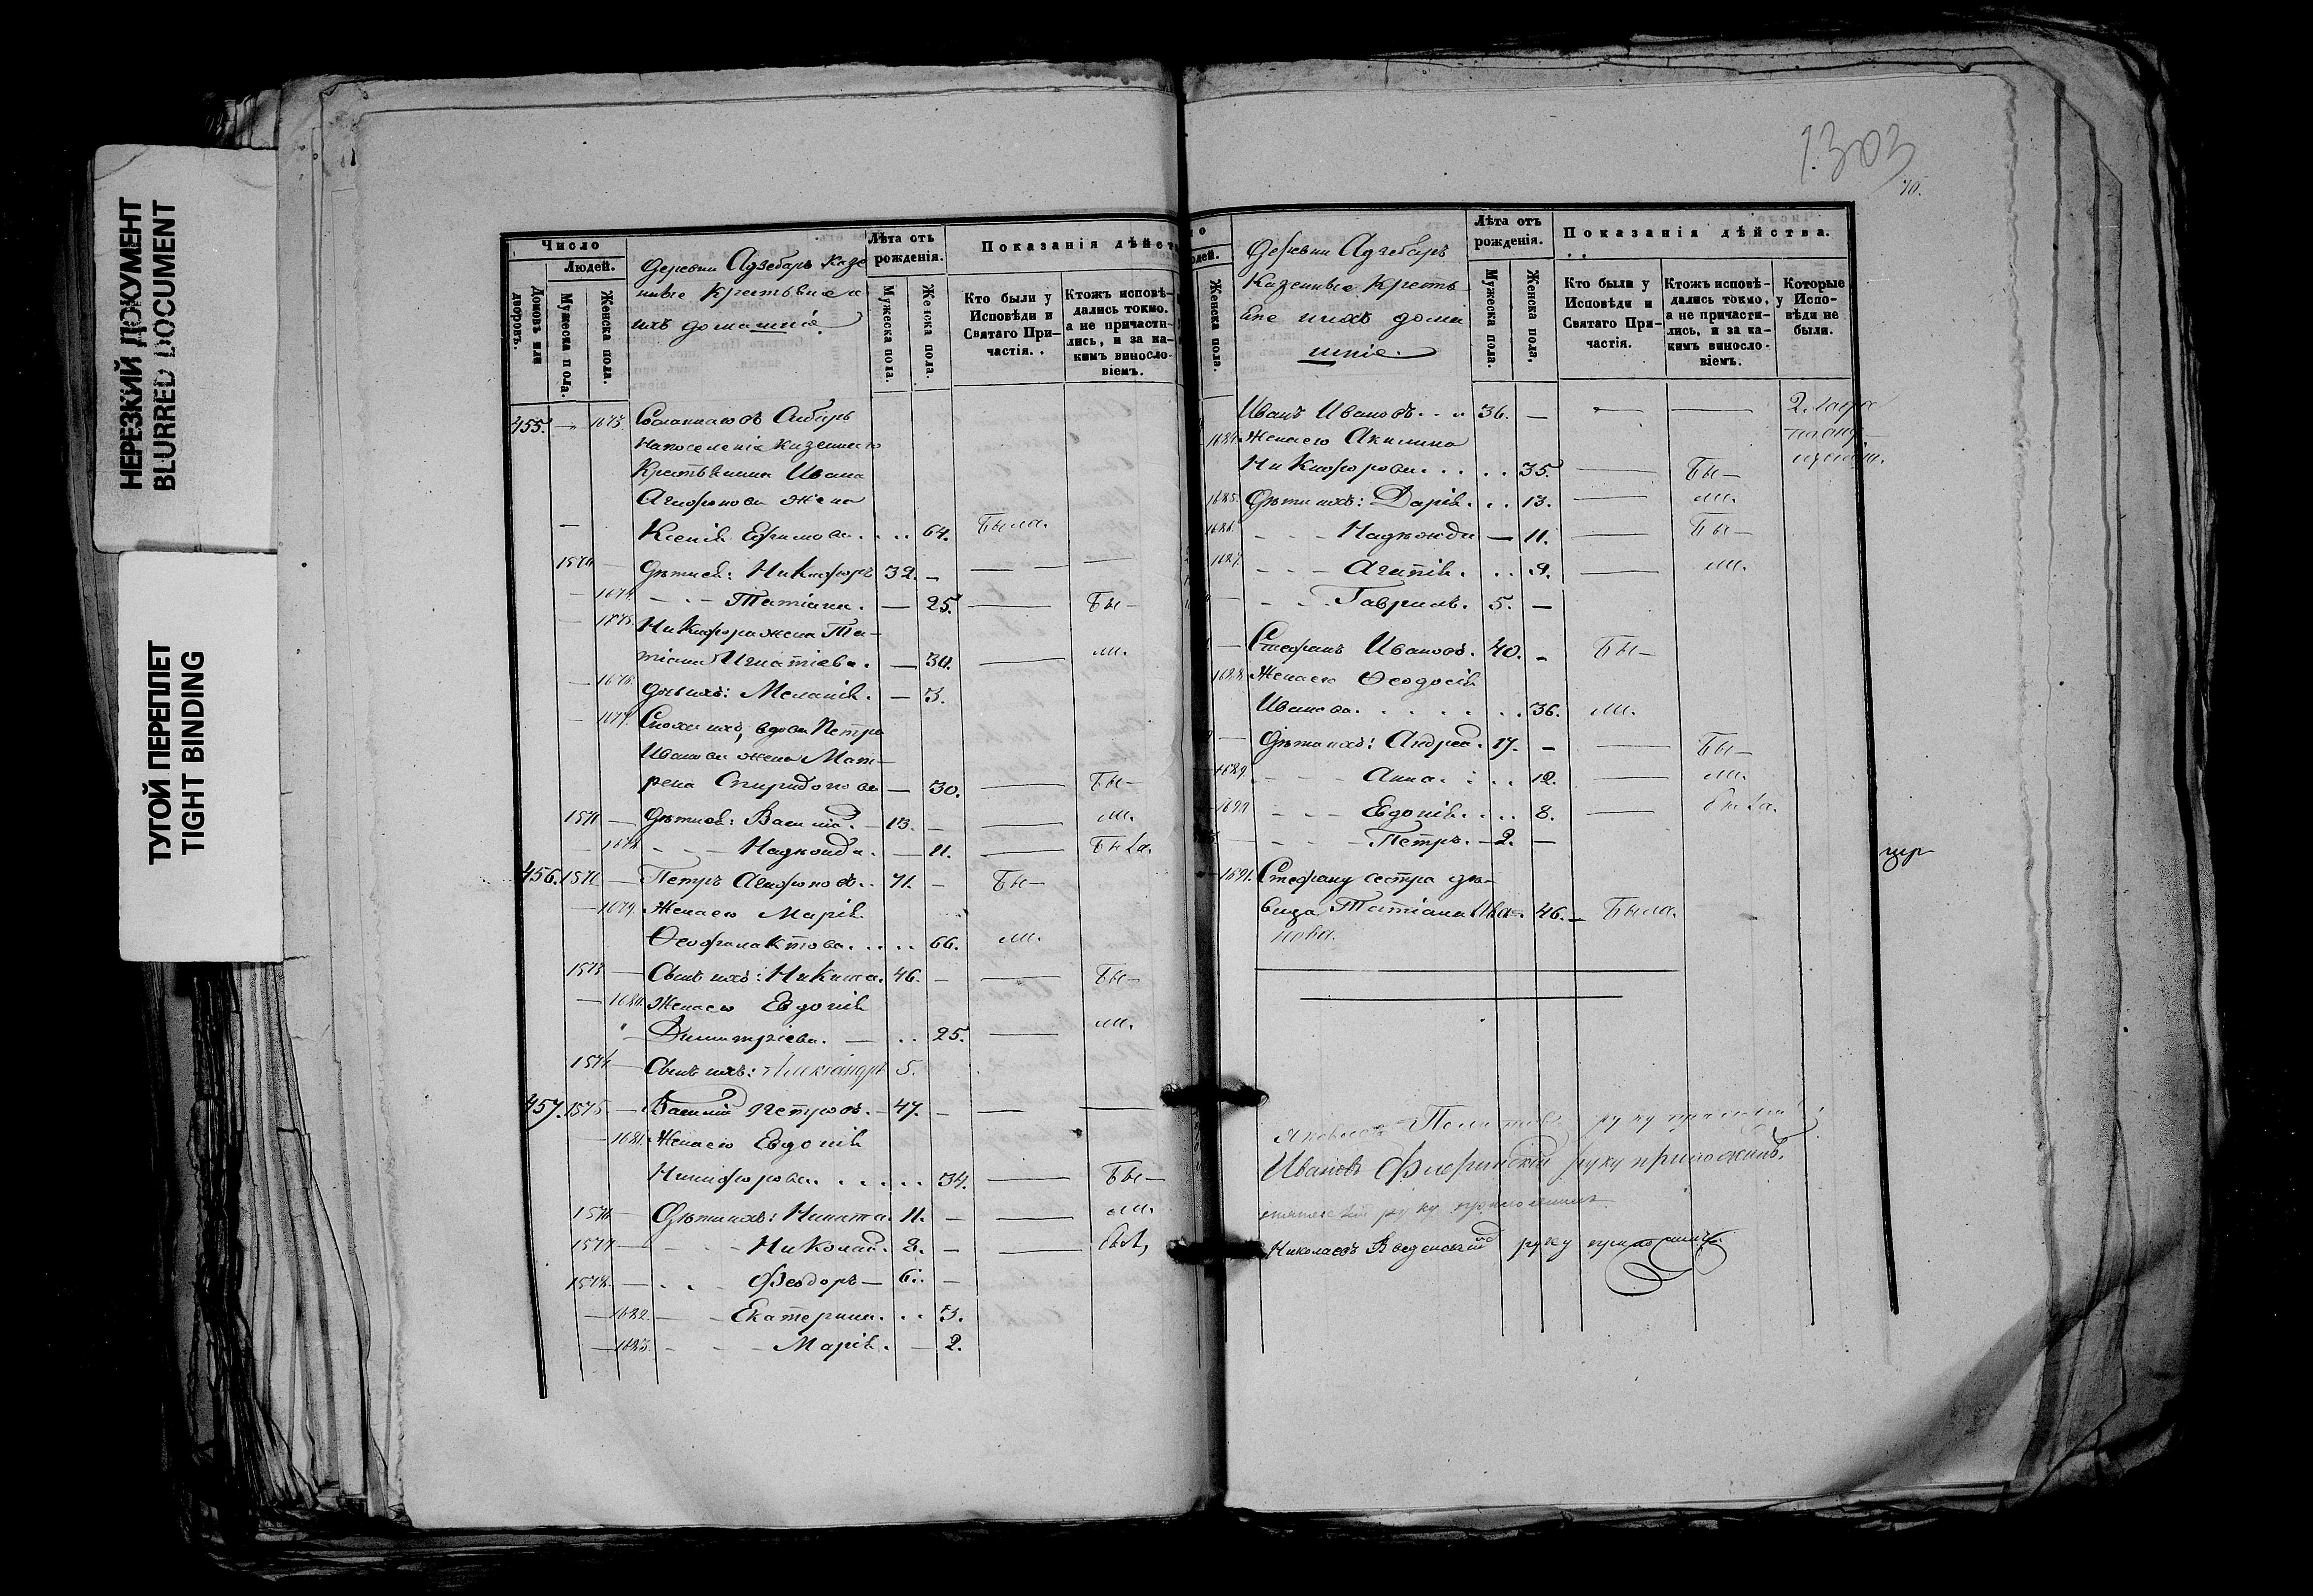 НЕРЕЗКИЙ ДОКУМЕНТ
BLURRED DOCUMENT
ТУГОЙ ПЕРЕПЛЕТ
TIGHT BINDING
Число
Людей.
Домовъ или дворовъ.
Мужеска пола.
Женска пола.
Деревни Адзебаръ казе
нные крестьяне и
ихъ домашніе.
Лѣта отъ рожденія.
Мужеска пола.
Женска пола.
Показанія дѣйст
Кто были у Исповѣди и Святаго При-частія.
Ктожъ исповѣ-дались токмо. а не причасти-лись, и за ка-кимъ винословіемъ.
455. — 1673. Сосланнаго въ Сибирь
на поселеніе казеннаго
Крестьянина Ивана
Агафонова жена
Ксенія Ефимова. 64. Была.
Дѣти ея: Никифоръ 32. —
Татіана. — 25. — Бы—
Никифора жена Та-
тіана Игнатіева. — 30. — ли.
дочь ихъ: Меланія. — 3.
1677. Сноха ихъ, вдова Петра
Иванова жена Мат-
рена Спиридонова — 30. — Бы—
Дѣти ея: Василій. — 13. — ли.
Надежда. — 11. — Была.
456. Петръ Агафоновъ. 71. — Бы—
1679. Жена его Марія
Ѳеофилактова. 66. ли.
1573 — Сынъ ихъ: Никита. 46. — Бы—
1680. Жена его Евдокія
Димитріева. — 25. — ли.
1574 — Сынъ ихъ: Александръ 5.
457. 1575. — Василій Петровъ. — 47. —
1681. Жена его Евдокія
Никифорова. 34. — Бы—
1576 — Дѣти ихъ: Никита. 11. — ли.
1577 — Николай. 8. —
1578. — Феодоръ — 6. —
1682. — Екатерина. 3.
1683. — Марія. — 2.
1303
70.
Женска пола.
Деревни Адзебаръ
Казенные Кресть
яне и ихъ дома
шніе.
Лѣта отъ рожденія.
Мужеска пола.
Женска пола,
Показанія дѣйства.
Кто были у Исповѣди и Святаго При-частія.
Ктожъ исповѣ-дались токмо, а не причасти-лись, и за ка-кимъ винословіемъ.
Которые у Испо-вѣди не были.
Иванъ Ивановъ. 36. —
1684. Жена его Акилина
Никифорова. 35. — Бы—
1685. Дѣти ихъ: Дарія. 13. — ли.
1686. Надежда — 11. — Бы—
1687. Агапія. 9. — ли.
Гавріилъ. 5. —
Стефанъ Ивановъ. 40. — Бы—
1688. Жена его Ѳеодосія
Иванова. 36. ли.
Дѣти ихъ: Андрей. 17. — Бы—
1689. Анна. 12. — ли.
1690 Евдокія. 8. — была.
Петръ. — 2. —
1691. Стефану сестра дѣ-
вица Татіана Ива- 46. — Была.
нова.
руку приложилъ
Ивановъ руку приложилъ.
руку приложилъ
Николаевъ Введенскій руку приложилъ